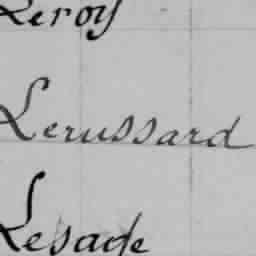 Leroy
Lerussard
Lesage